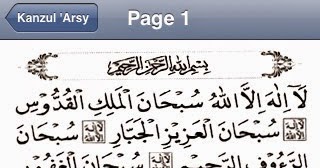 Kanzul 'Arsy
Page 1
بِسْمِ اللهِ الرَّحْمٰنِ الرَّحِيْمِ
لَآ اِلٰهَ اِلَّا اللهُ سُبْحَانَ الْمَلِكِ الْقُدُّوْسِ
لَآ اِلٰهَ اِلَّا اللهُ سُبْحَانَ الْعَزِيْزِ الْجَبَّارِ لَآ اِلٰهَ اِلَّا اللهُ سُبْحَانَ
الرَّءُوْفِ الرَّحِيْمِ لَآ اِلٰهَ اِلَّا اللهُ سُبْحَانَ الْغَفُوْرِ